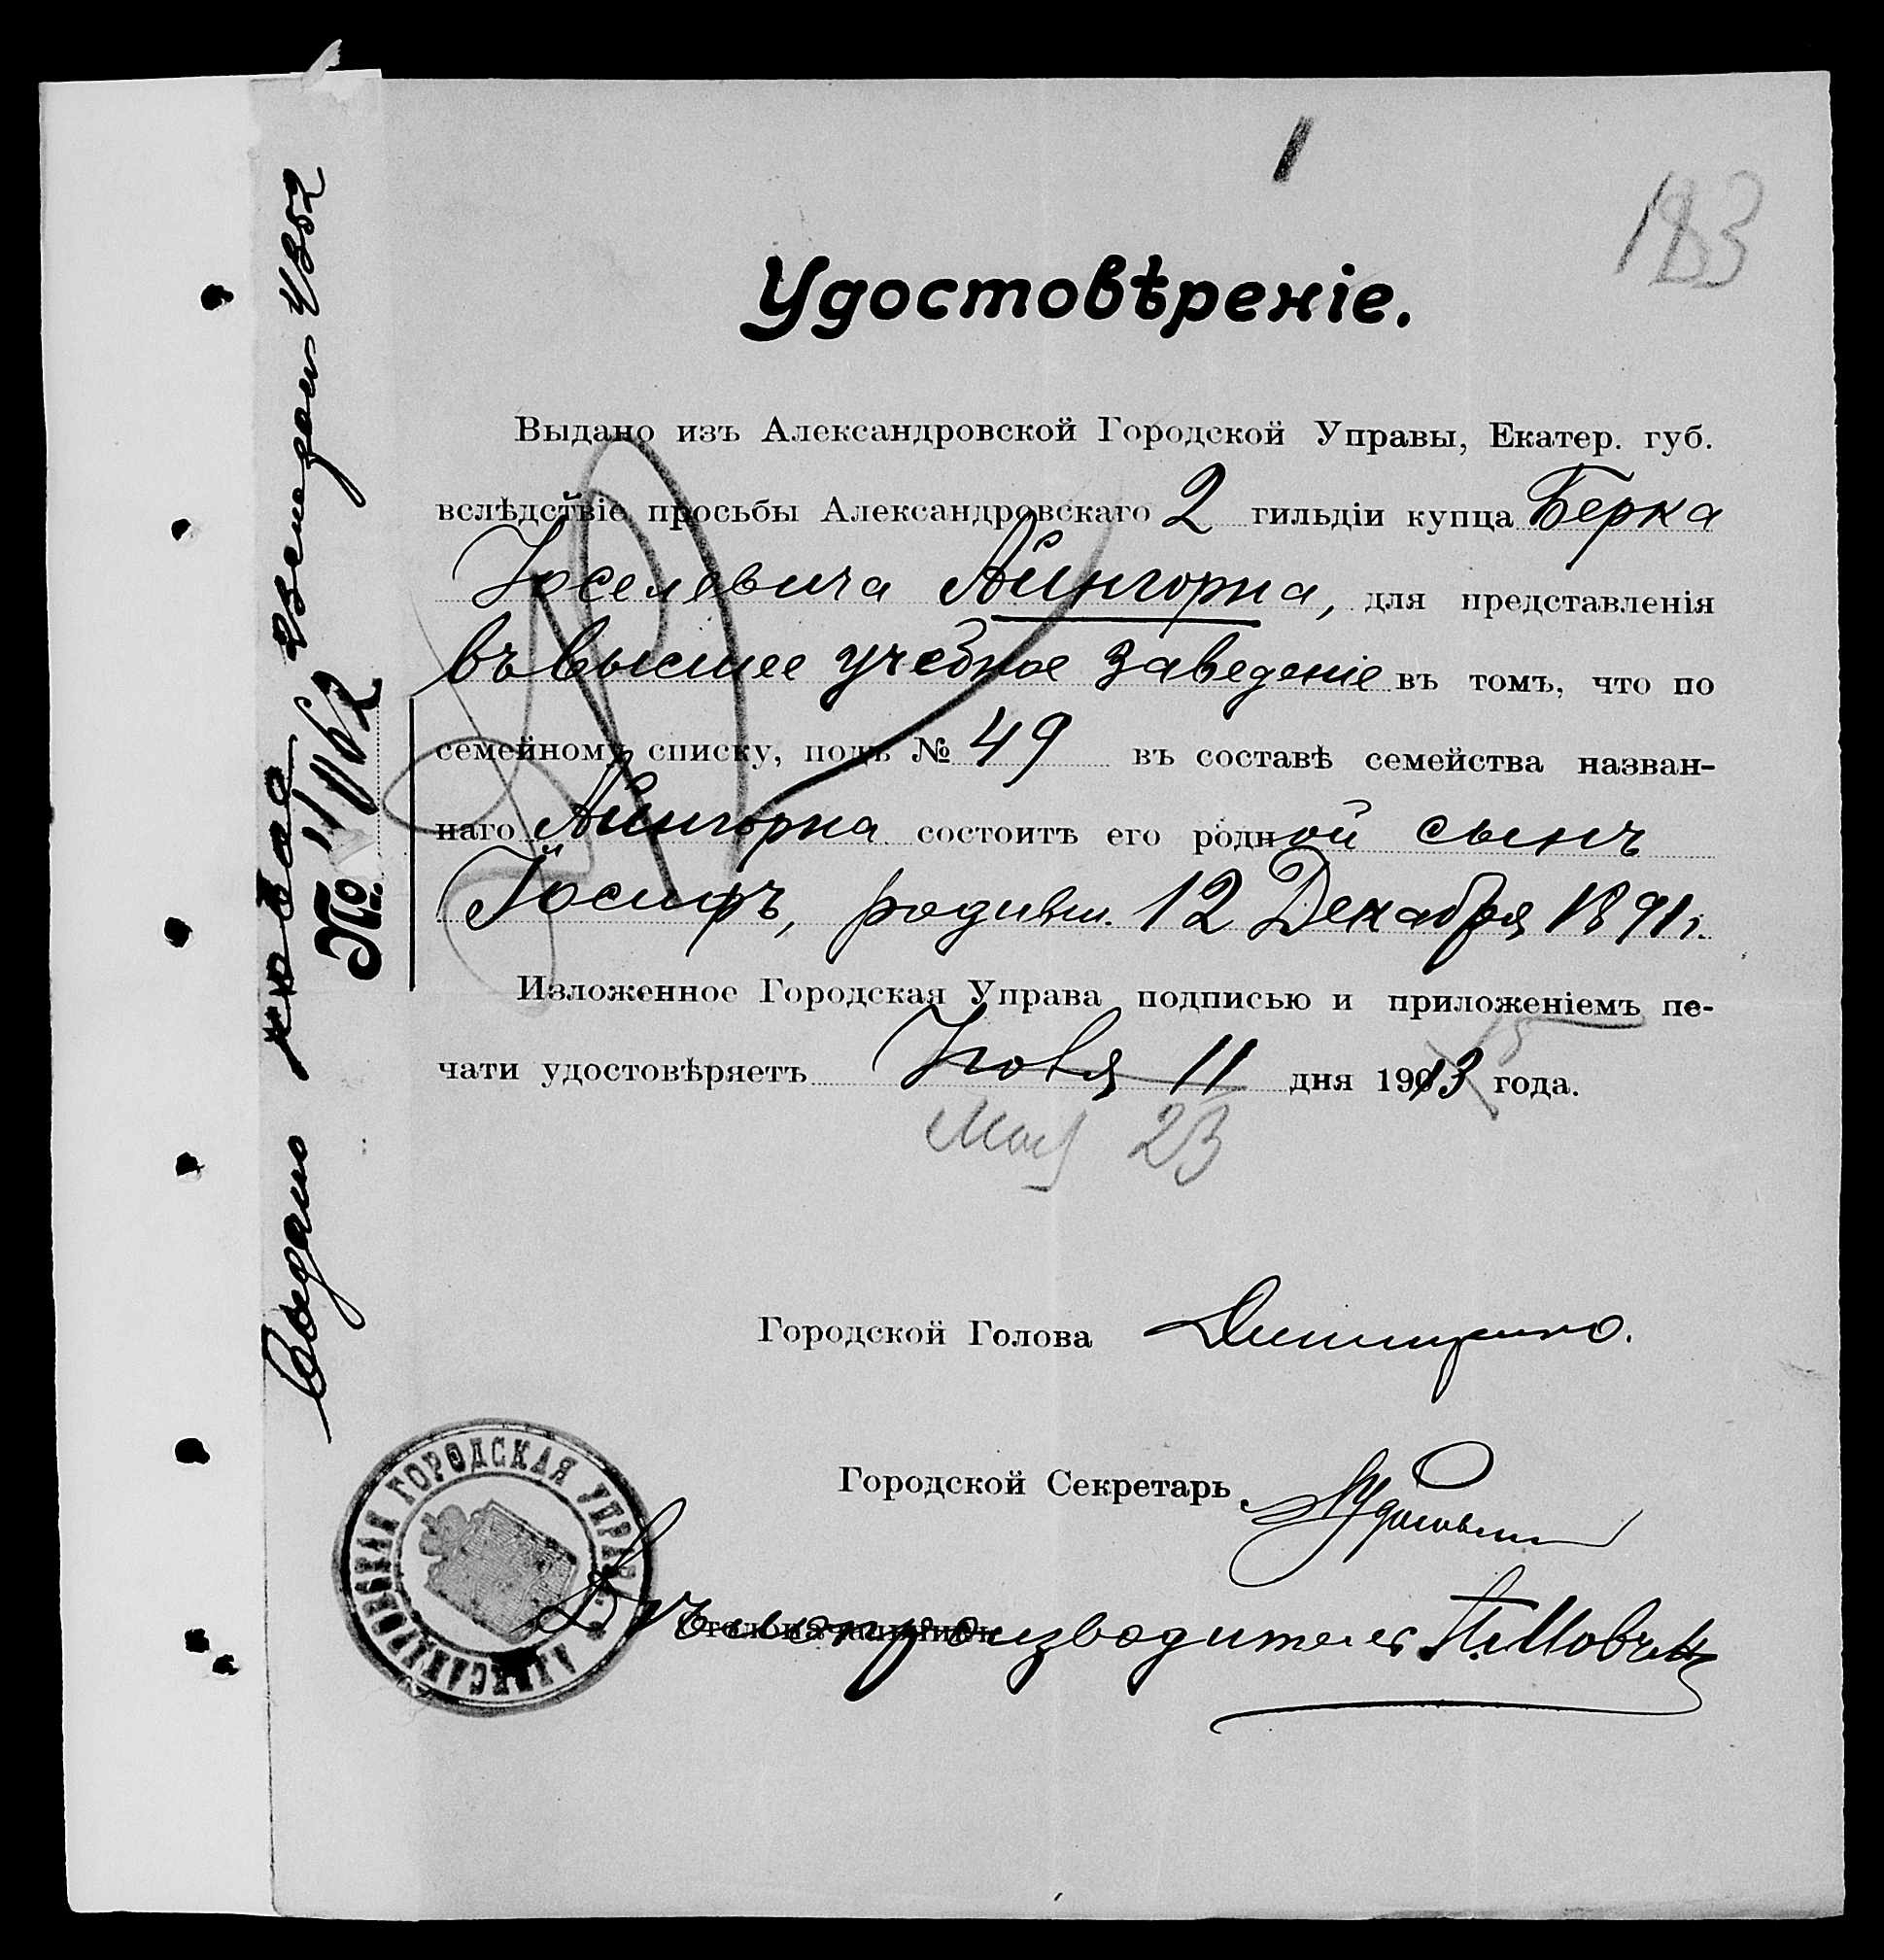 1
183
Удостовѣреніе.
Выдано изъ Александровской Городской Управы, Екатер. губ.
вслѣдствіе просьбы Александровскаго 2 гильдіи купца Берка
Іоселевича Айнгорна, для представленія
въ высшее учебное заведеніе въ томъ, что по
семейному списку, подъ № 49 въ составѣ семейства назван-
наго Айнгорна состоитъ его родной сынъ
Іосифъ, родивш. 12 Декабря 1891 г.
Изложенное Городская Управа подписью и приложеніемъ пе-
чати удостовѣряетъ Іюня 11 дня 1913 года.
15
Мая 23
Городской Голова
Городской Секретарь
Столоначальникъ
Дѣлопроизводитель
АЛЕКСАНДРОВСКАЯ ГОРОДСКАЯ УПРАВА
Выдано
№